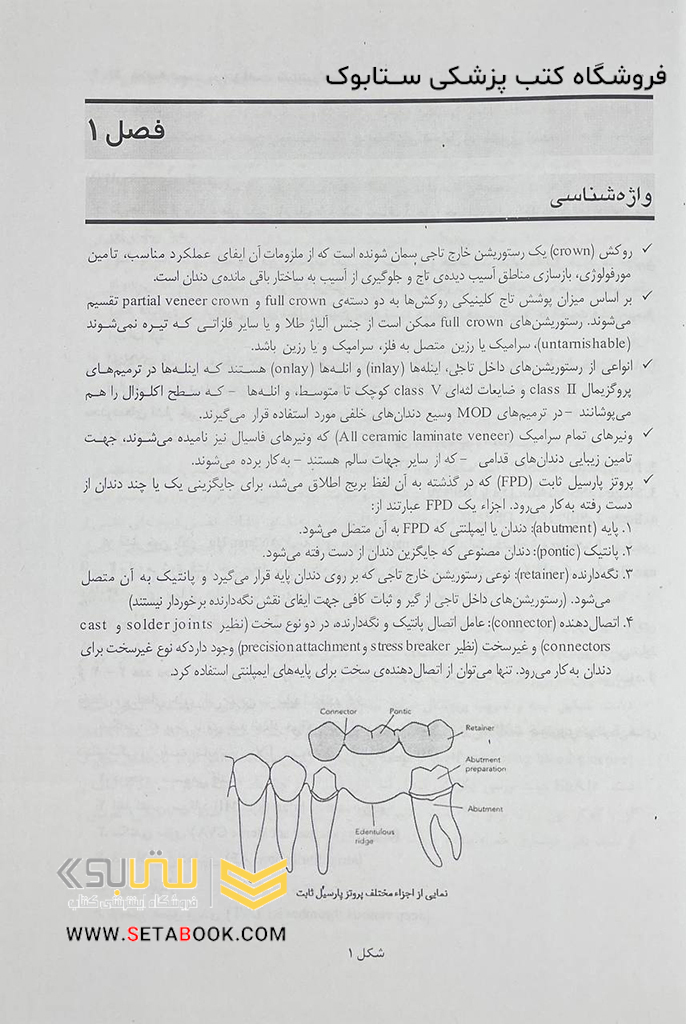 فروشگاه کتب پزشکی ستابوک
فصل ۱
واژه‌شناسی
✓ روکش (crown) یک رستوریشن خارج تاجی سمان شونده است که از ملزومات آن ایفای عملکرد مناسب، تامین
مورفولوژی، بازسازی مناطق آسیب دیده‌ی تاج و جلوگیری از آسیب به ساختار باقی مانده‌ی دندان است.
✓ بر اساس میزان پوشش تاج کلینیکی روکش‌ها به دو دسته‌ی full crown و partial veneer crown تقسیم
می‌شوند. رستوریشن‌های full crown ممکن است از جنس آلیاژ طلا و یا سایر فلزاتی که تیره نمی‌شوند
(untarnishable)، سرامیک یا رزین متصل به فلز، سرامیک و یا رزین باشد.
✓ انواعی از رستوریشن‌های داخل تاجی، اینله‌ها (inlay) و انله‌ها (onlay) هستند که اینله‌ها در ترمیم‌های
پروگزیمال class II و ضایعات لثه‌ای class V کوچک تا متوسط، و انله‌ها – که سطح اکلوزال را هم
می‌پوشانند – در ترمیم‌های MOD وسیع دندان‌های خلفی مورد استفاده قرار می‌گیرند.
✓ ونیرهای تمام سرامیک (All ceramic laminate veneer) که ونیرهای فاسیال نیز نامیده می‌شوند، جهت
تامین زیبایی دندان‌های قدامی – که از سایر جهات سالم هستند – به‌کار برده می‌شوند.
✓ پروتز پارسیل ثابت (FPD) که در گذشته به آن لفظ بریج اطلاق می‌شد، برای جایگزینی یک یا چند دندان از
دست رفته به‌کار می‌رود. اجزاء یک FPD عبارتند از:
۱. پایه (abutment): دندان یا ایمپلنتی که FPD به آن متصل می‌شود.
۲. پانتیک (pontic): دندان مصنوعی که جایگزین دندان از دست رفته می‌شود.
۳. نگه‌دارنده (retainer): نوعی رستوریشن خارج تاجی که بر روی دندان پایه قرار می‌گیرد و پانتیک به آن متصل
می‌شود. (رستوریشن‌های داخل تاجی از گیر و ثبات کافی جهت ایفای نقش نگه‌دارنده برخوردار نیستند)
۴. اتصال‌دهنده (connector): عامل اتصال پانتیک و نگه‌دارنده، در دو نوع سخت (نظیر solder joints و cast
connectors) و غیرسخت (نظیر stress breaker و precision attachment) وجود دارد که نوع غیرسخت برای
دندان به‌کار می‌رود. تنها می‌توان از اتصال‌دهنده‌ی سخت برای پایه‌های ایمپلنتی استفاده کرد.
Connector
Pontic
Retainer
Abutment
preparation
Abutment
Edentulous
ridge
نمایی از اجزاء مختلف پروتز پارسیل ثابت
ستابوک
فروشگاه اینترنتی کتاب
WWW.SETABOOK.COM
شکل ۱